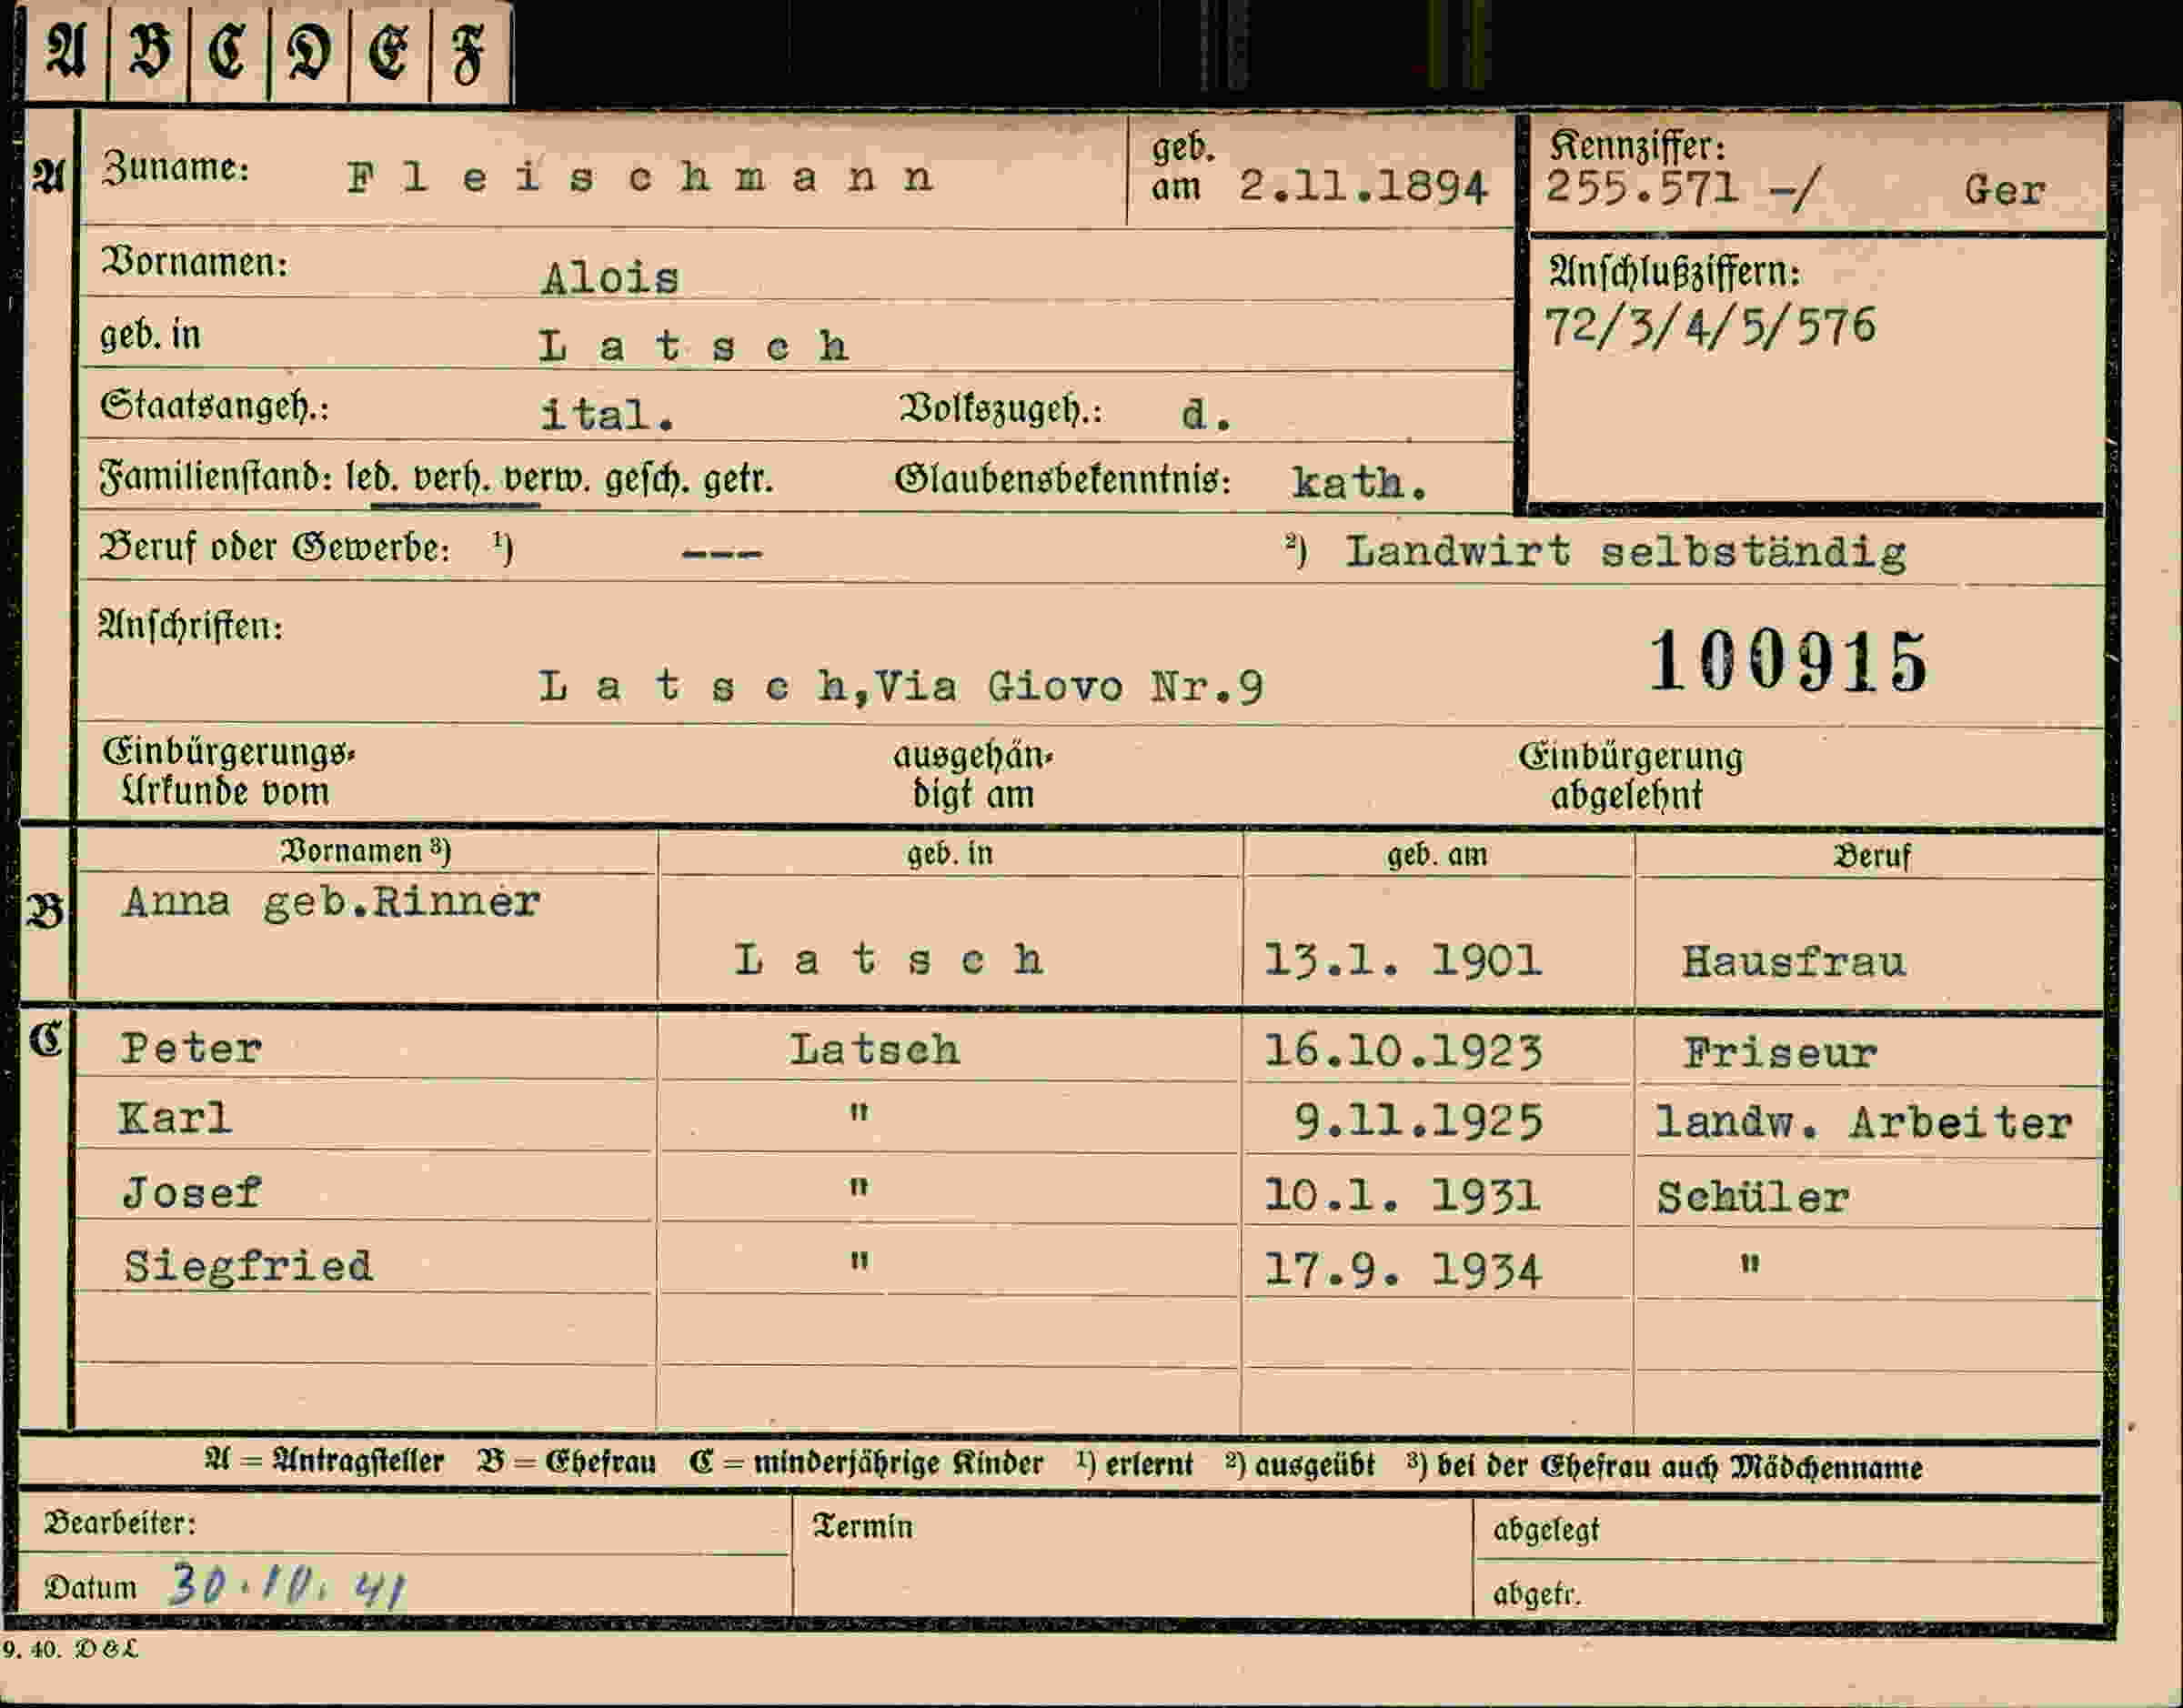 A B C D E F
A Zuname: Fleischmann geb. am 2.11.1894 Kennziffer: 255.571 -/ Ger
Vornamen: Alois Anschlußziffern:
geb. in Latsch 72/3/4/5/576
Staatsangeh.: ital. Volkszugeh.: d.
Familienstand: led. verh. verw. gesch. getr. Glaubensbekenntnis: kath.
Beruf oder Gewerbe: ¹) --- ²) Landwirt selbständig
Anschriften: 100915
Latsch,Via Giovo Nr.9
Einbürgerungs- ausgehän- Einbürgerung
Urkunde vom digt am abgelehnt
Vornamen ³) geb. in geb. am Beruf
B Anna geb.Rinner
Latsch 13.1. 1901 Hausfrau
C Peter Latsch 16.10.1923 Friseur
Karl " 9.11.1925 landw. Arbeiter
Josef " 10.1. 1931 Schüler
Siegfried " 17.9. 1934 "
A = Antragsteller B = Ehefrau C = minderjährige Kinder ¹) erlernt ²) ausgeübt ³) bei der Ehefrau auch Mädchenname
Bearbeiter: Termin abgelegt
Datum 30.10.41 abgetr.
9. 40. D & L